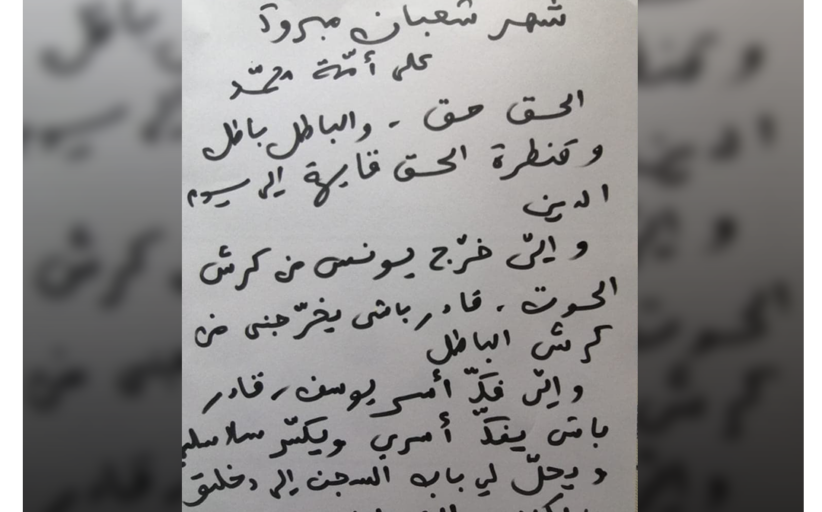 شهر شعبان مبروك
على أمّة محمّد
الحق حق - والباطل باطل
و قنطرة الحق قايمة إلى يوم
الدين
و اليّ خرّج يونس من كرش
الحوت . قادر باش يخرّجني من
كرش الباطل
و اليّ فكّ أسر يوسف ، قادر
باش يفكّ أسري ويكسّر سلاسلي
و يحلّ لي باب السجن إلى دخلتو